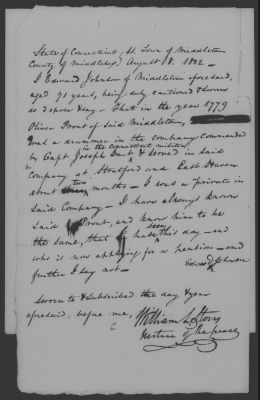 State of Connecticut, ss. Town of Middletown
County of Middlesex, August 8. 1832 —
I Edward Johnson of Middletown aforesaid,
aged 71 years, being duly cautioned & sworn
do depose & say — That in the year 1779
Oliver Prout of said Middletown,
was a drummer in the company commanded
in the Connecticut militia
by Capt Joseph & served in said
Company at Stratford and East Haven
about two months — I was a private in
said Company — I have always known
said Prout, and know him to be
the same, that I have seen this day — and
who is now applying for a pension — and
further I say not —
Edward Johnson
sworn to & subscribed the day & year
aforesaid, before me,
William L Story
Justice of the peace